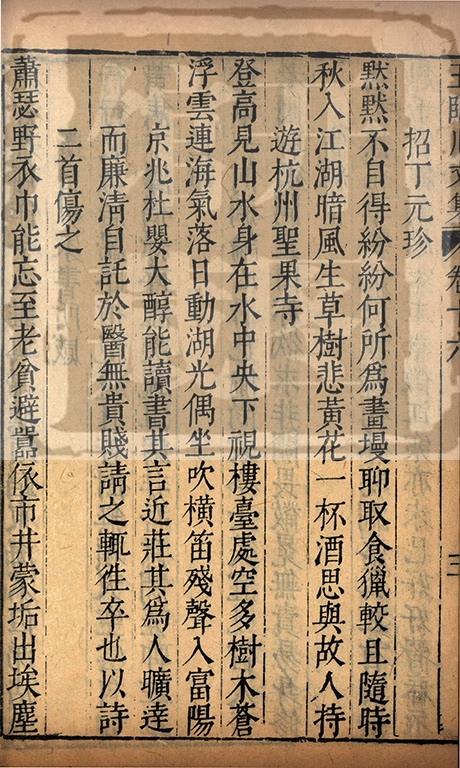 王臨川文集 卷十六 三
招丁元珍
默默不自得紛紛何所爲畫墁聊取食獵較且隨時
秋入江湖暗風生草樹悲黃花一杯酒思與故人持
遊杭州聖果寺
登高見山水身在水中央下視樓臺處空多樹木蒼
浮雲連海氣落日動湖光偶坐吹橫笛殘聲入富陽
京兆杜嬰大醇能讀書其言近莊其爲人曠達
而廉淸自託於醫無貴賤請之輒徃卒也以詩
二首傷之
蕭瑟野衣巾能忘至老貧避囂依市井蒙垢出埃塵